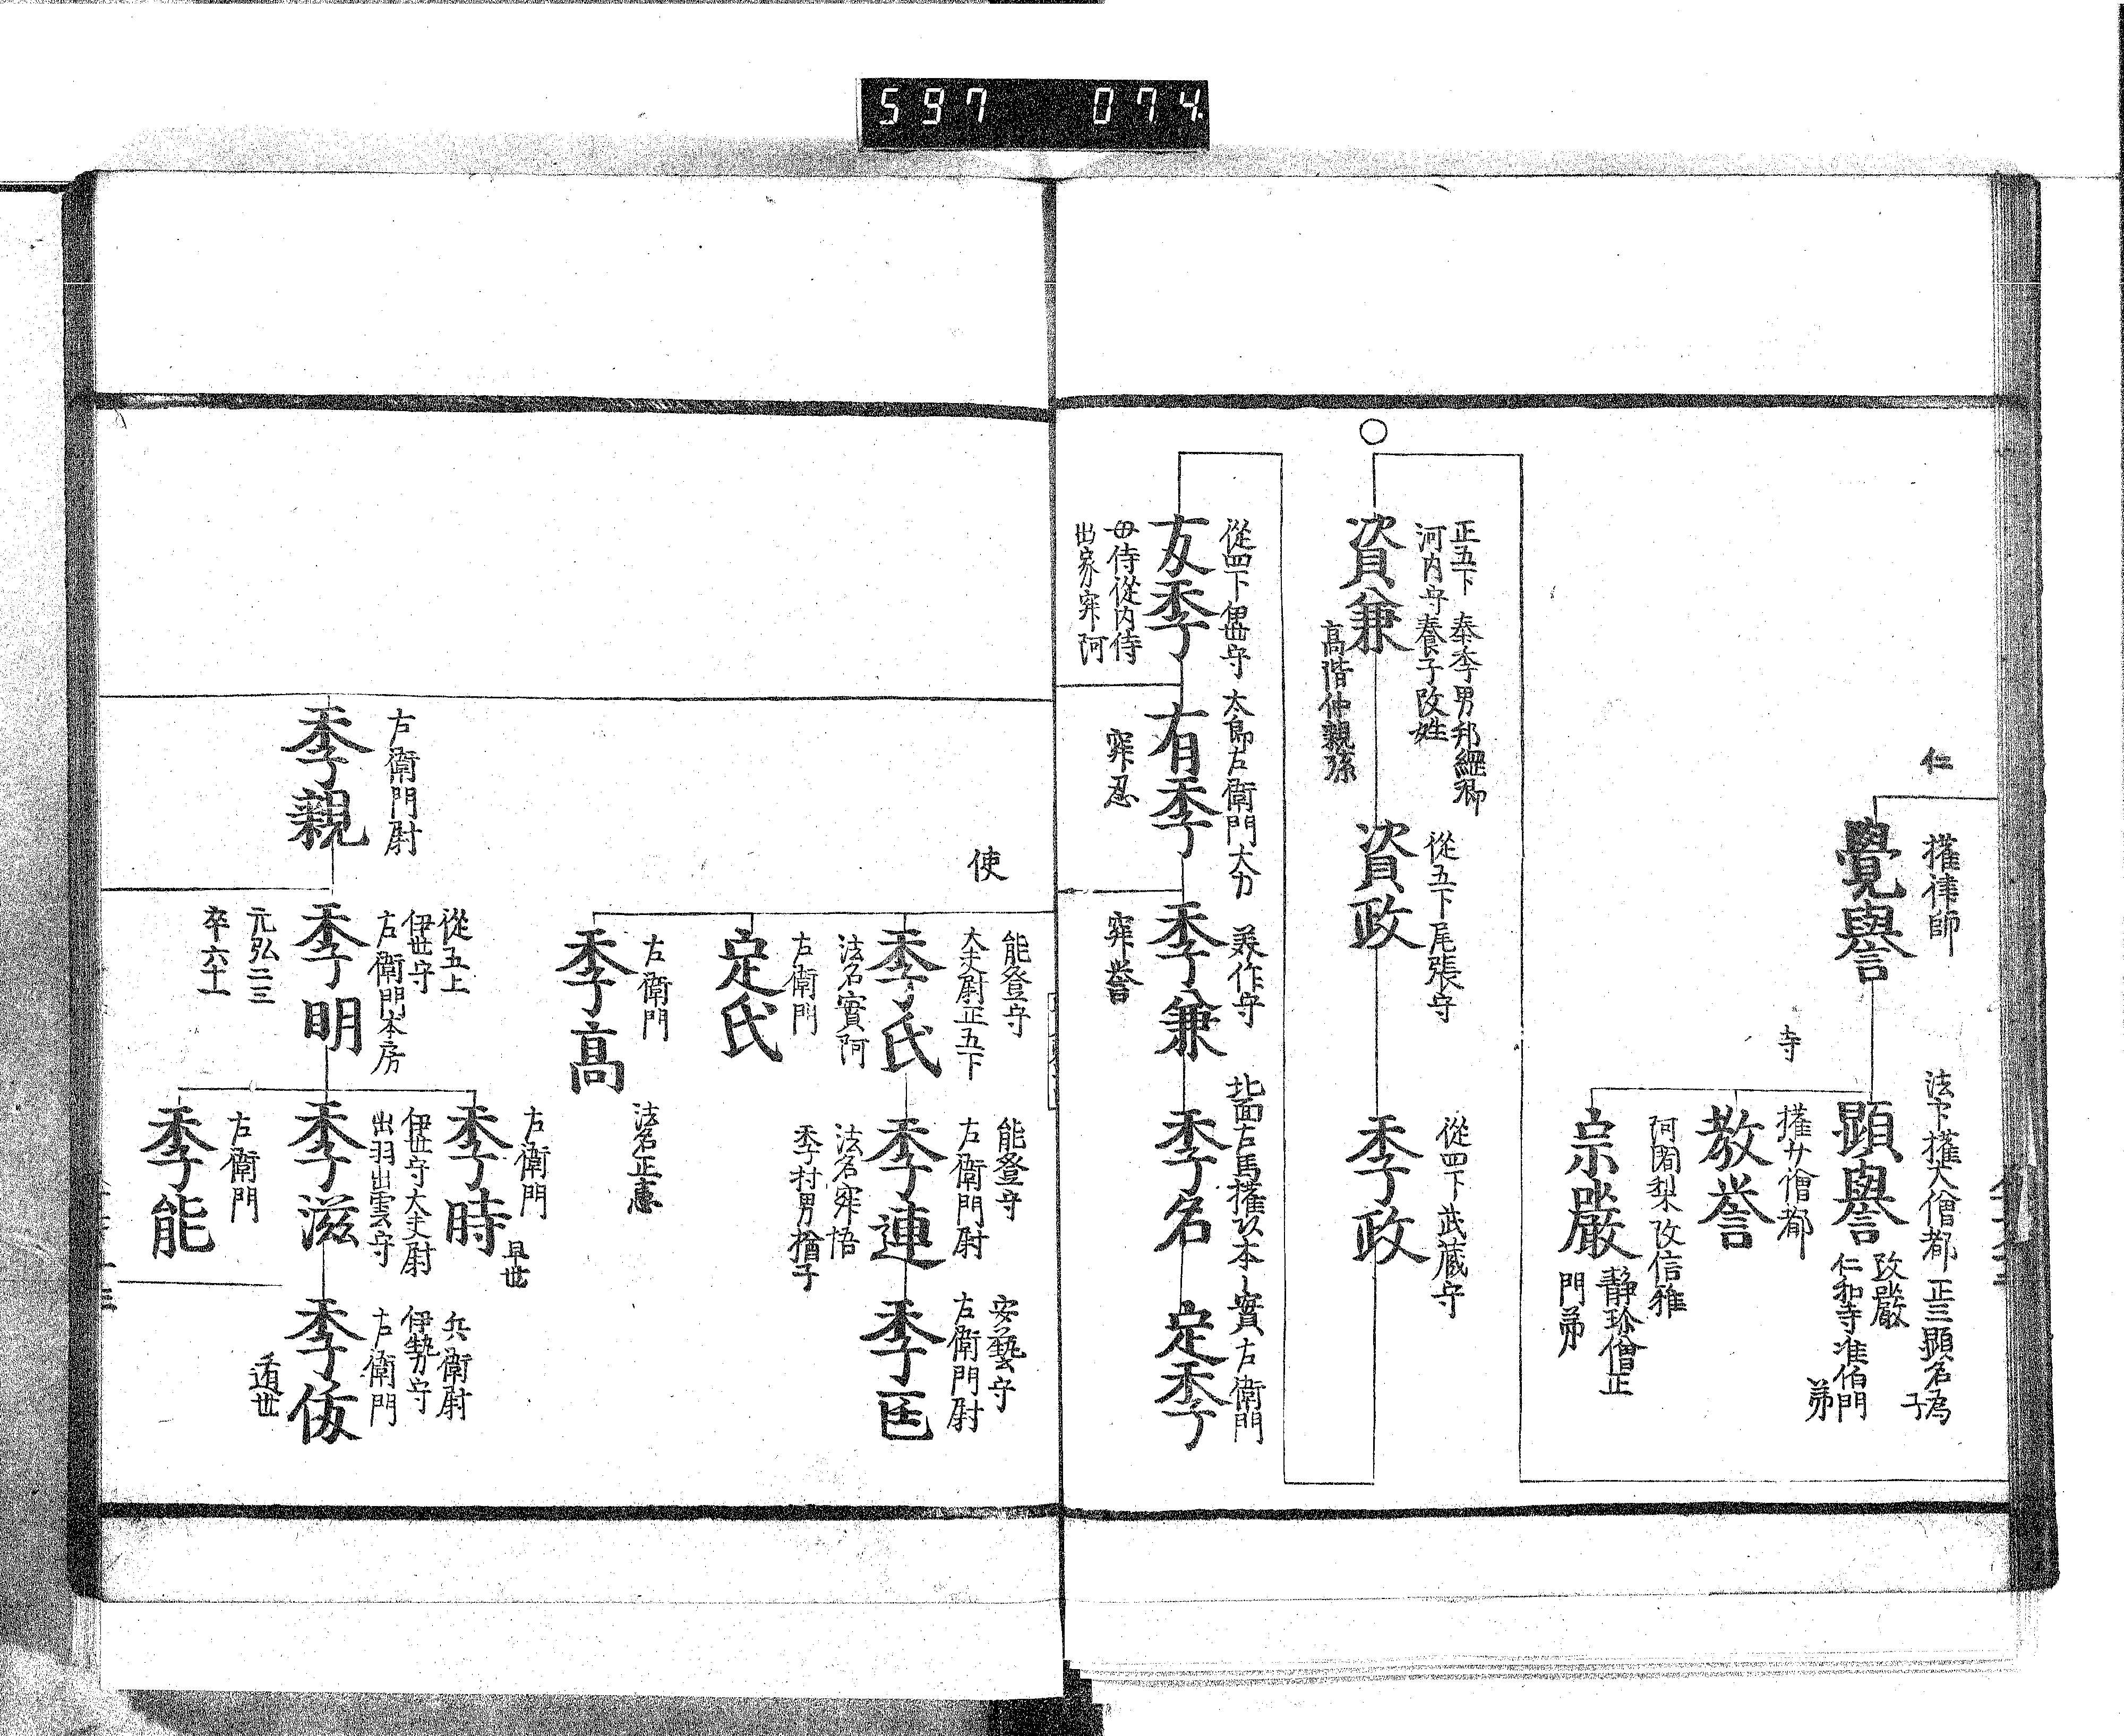 597 074
仁
權律師
覺譽
法下權大僧都 正三顕名為
子
顕譽
改嚴
仁和寺准伯門
弟
寺
權少僧都
教誉
阿闍梨改信雅
宗嚴
静珍僧正
門弟
○
正五下 泰季男邦繩卿
河内守養子改姓
資兼
高階仲親孫
從五下尾張守
資政
從四下武蔵守
季政
從四下伊世守
友季
母侍從内侍
出家寂阿
太郎左衛門大夫
有季
寂忍
美作守
季兼
寂誉
北面右馬權以本ト實
季名
右衛門
定季
使
能登守
大夫尉正五下
季氏
法名實阿
能登守
左衛門尉
季連
法名寂悟
季村男猶子
安藝守
左衛門尉
季匡
左衛門
定氏
左衛門
季高
法名正惠
左衛門尉
季親
從五上
伊世守
左衛門本房
季明
元弘二三
卒六十
左衛門
季時
早世
伊世守大夫尉
出羽出雲守
季滋
兵衛尉
伊勢守
左衛門
季
遁世
左衛門
季能